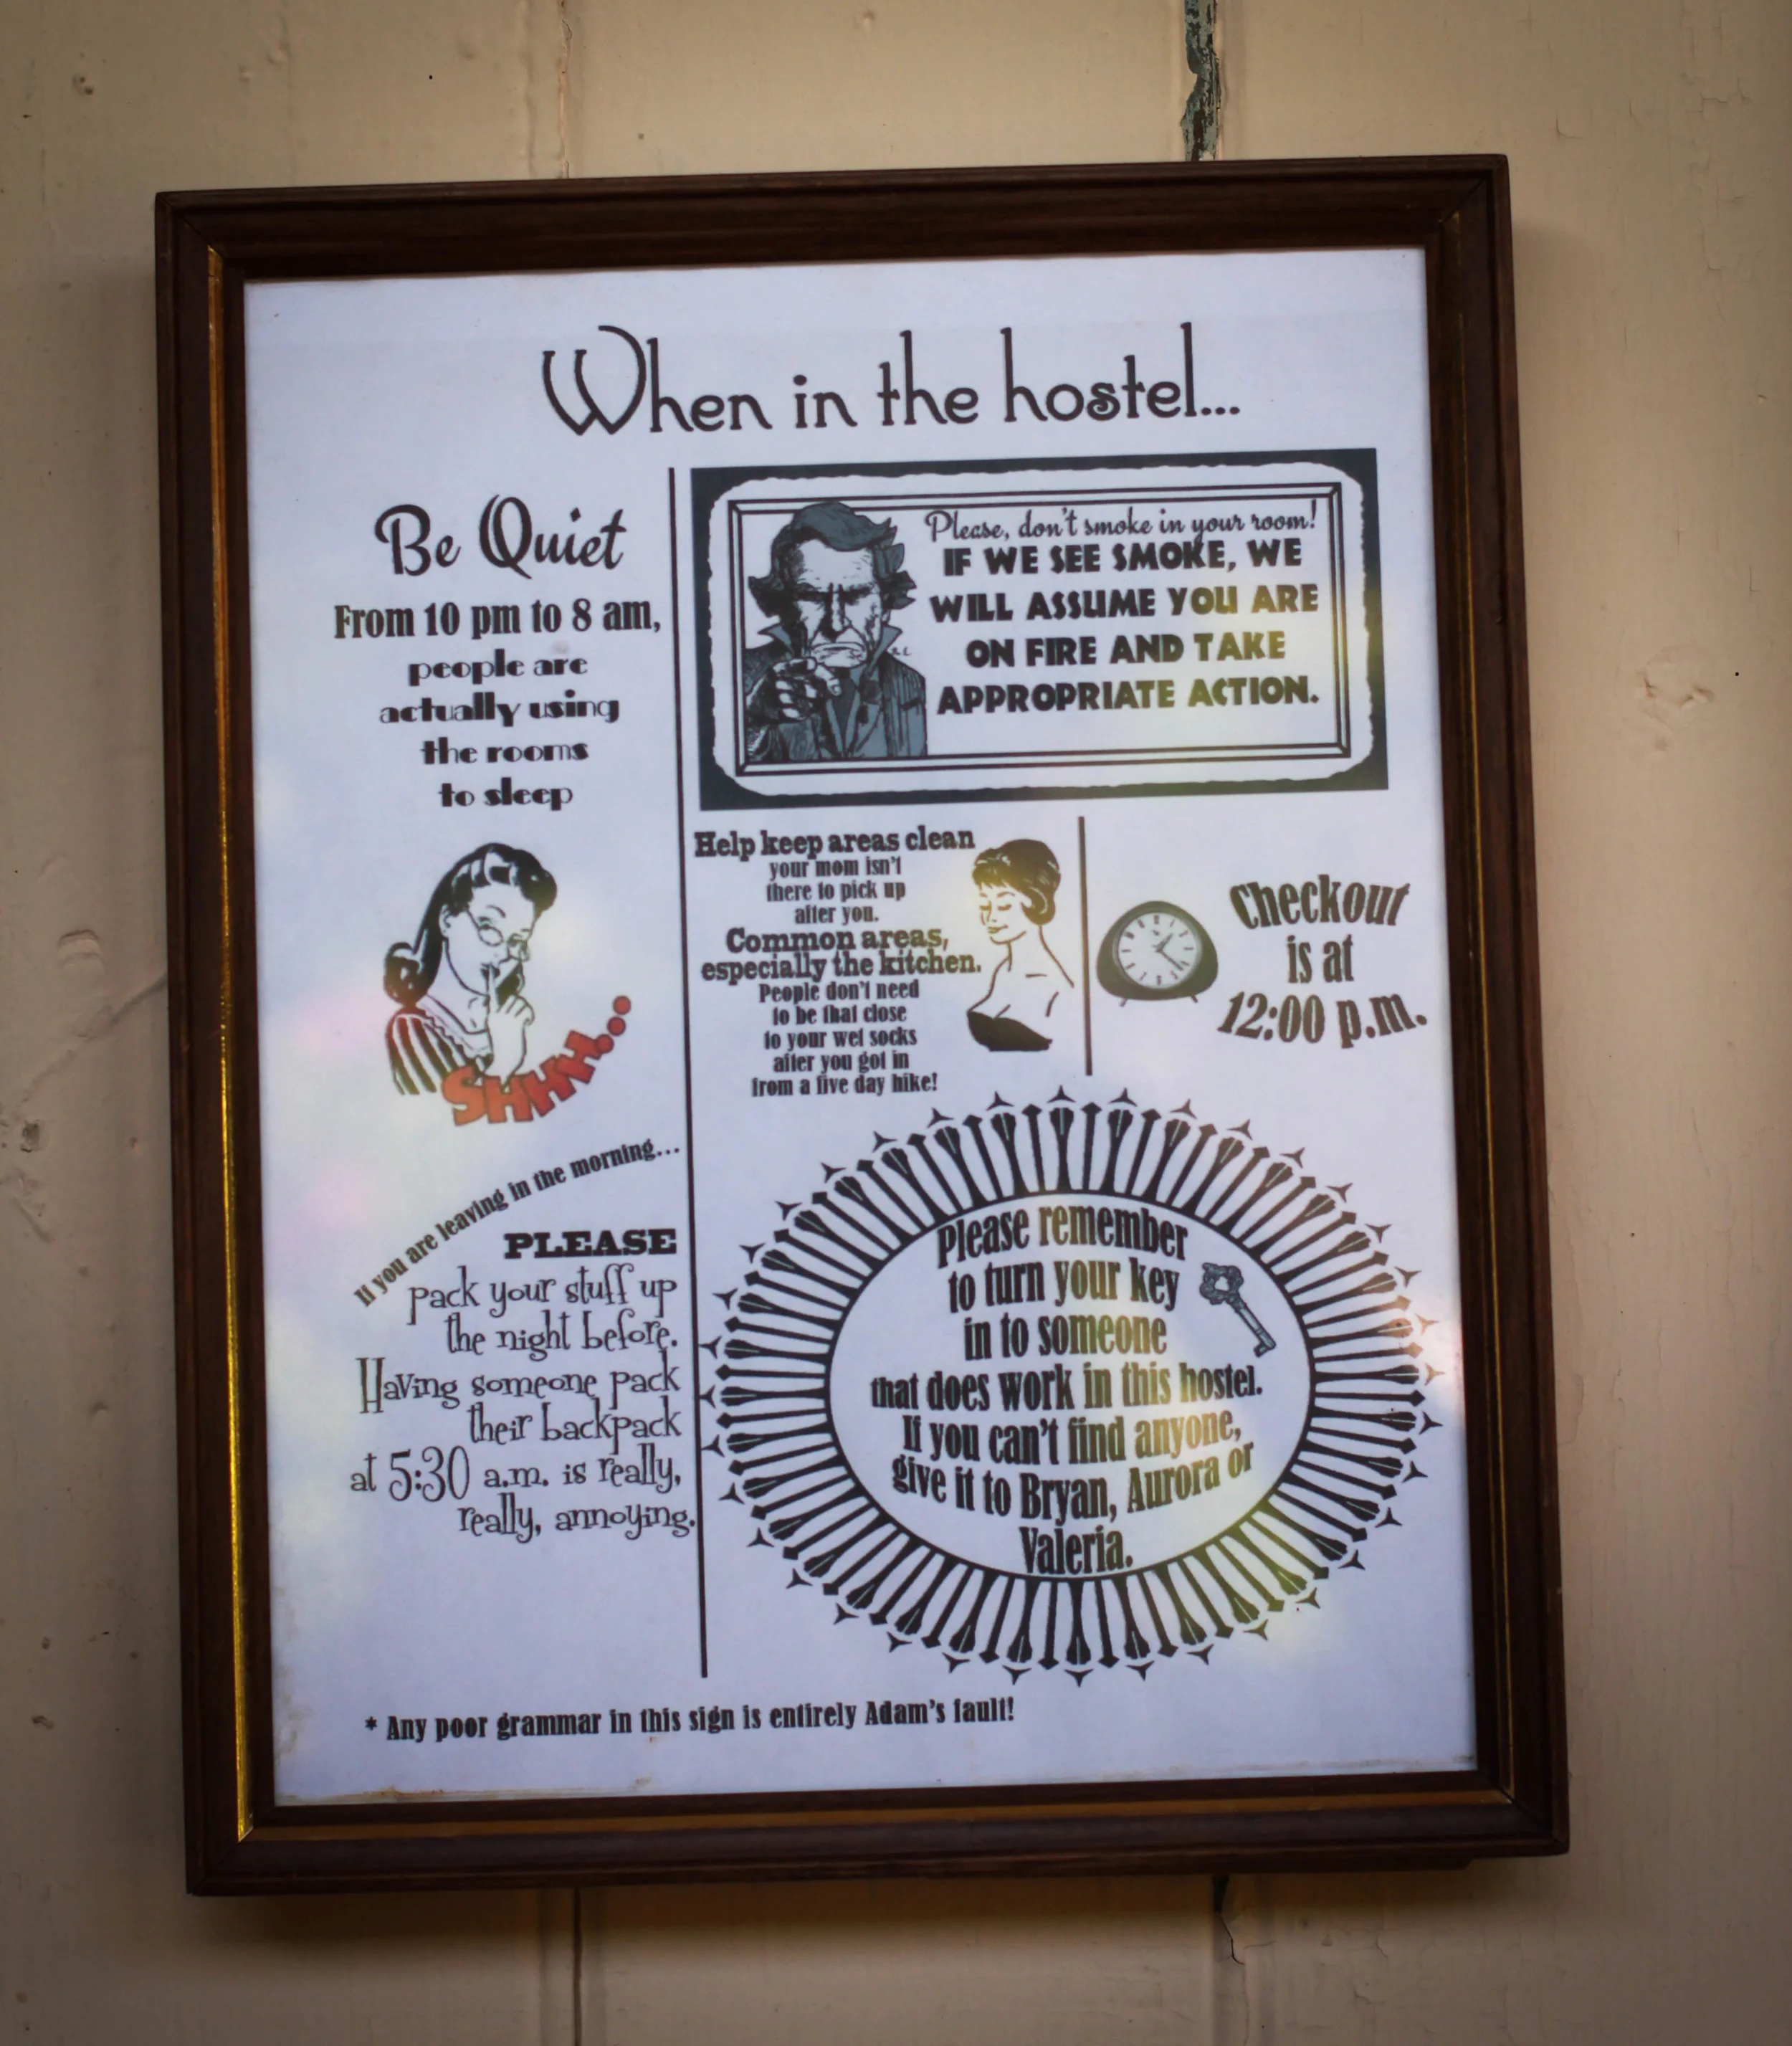 When in the hostel...
Be Quiet
From 10 pm to 8 am,
people are
actually using
the rooms
to sleep
SHHH...
If you are leaving in the morning...
PLEASE
pack your stuff up
the night before.
Having someone pack
their backpack
at 5:30 a.m. is really,
really, annoying.
Please, don't smoke in your room!
IF WE SEE SMOKE, WE
WILL ASSUME YOU ARE
ON FIRE AND TAKE
APPROPRIATE ACTION.
Help keep areas clean
your mom isn't
there to pick up
after you.
Common areas,
especially the kitchen.
People don't need
to be that close
to your wet socks
after you got in
from a five day hike!
Checkout
is at
12:00 p.m.
Please remember
to turn your key
in to someone
that does work in this hostel.
If you can't find anyone,
give it to Bryan, Aurora or
Valeria.
* Any poor grammar in this sign is entirely Adam's fault!